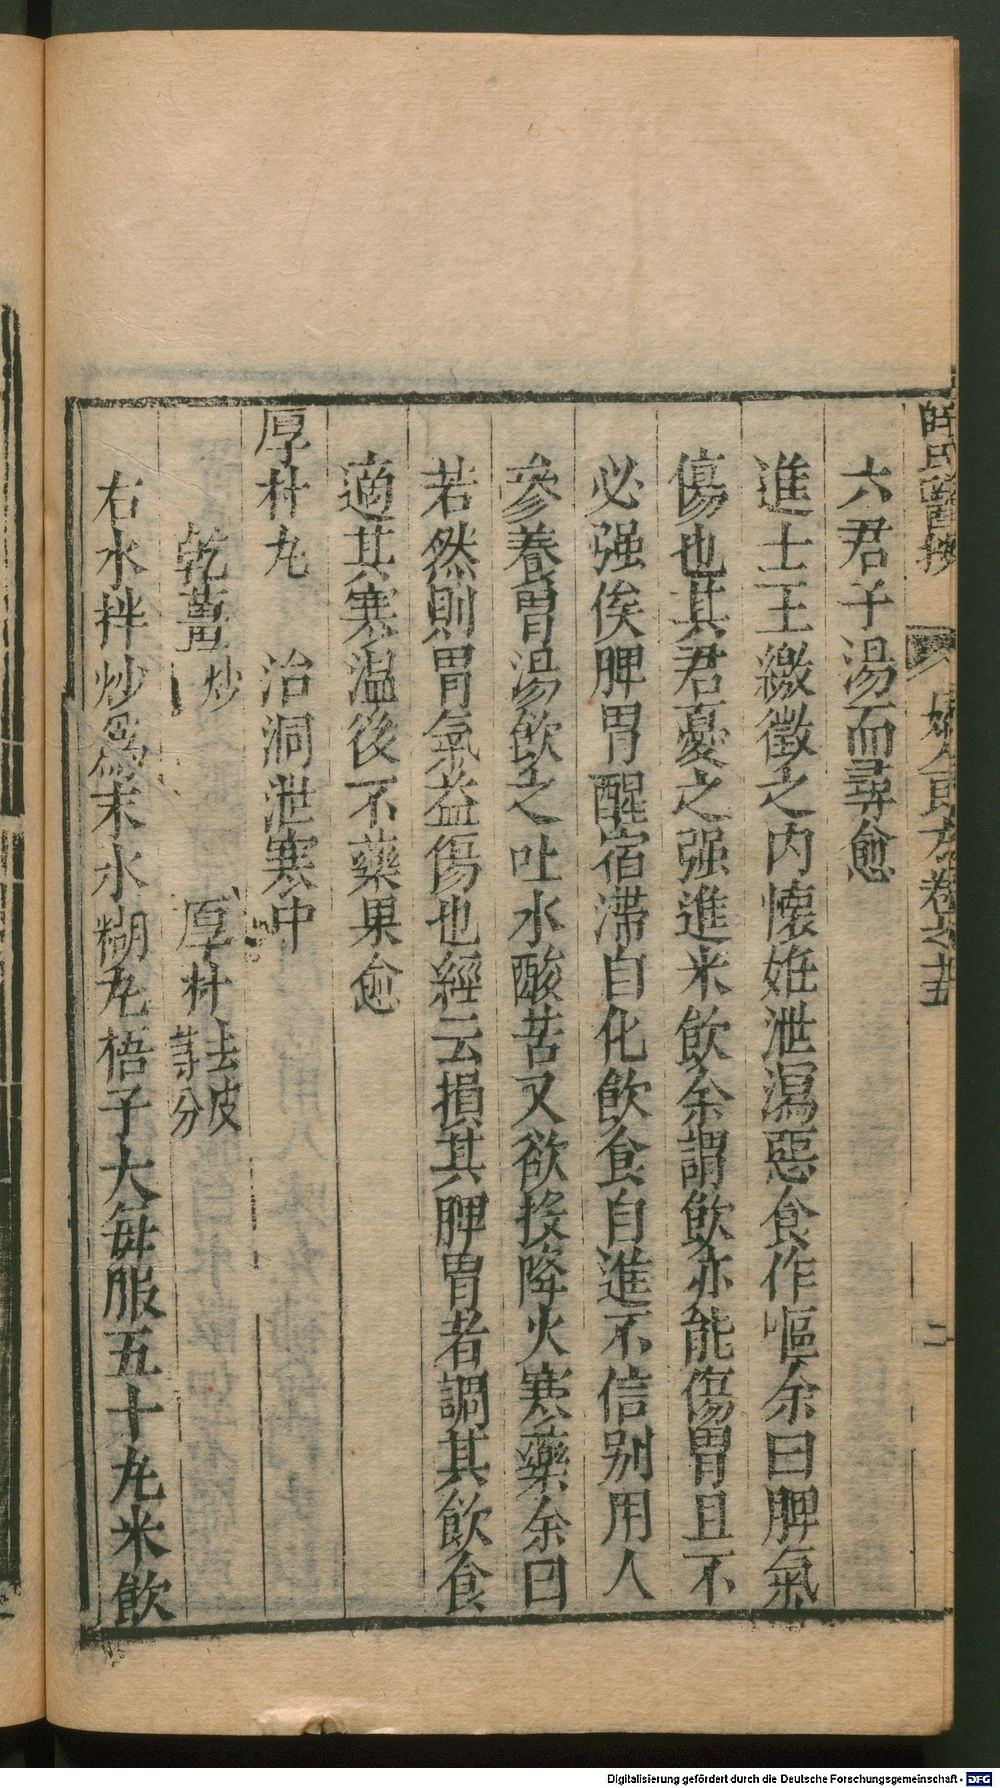 薛氏醫按 婦人良方卷之十五 二
六君子湯而尋愈
進士王繳徵之內懷姙泄瀉惡食作嘔余曰脾氣
傷也其君憂之强進米飲余謂飲亦能傷胃且不
必强俟脾胃醒宿滯自化飲食自進不信别用人
參養胃湯飲之吐水酸苦又欲投降火寒藥余曰
若然則胃氣益傷也經云損其脾胃者調其飲食
適其寒温後不藥果愈
厚朴丸 治洞泄寒中
乾薑炒 厚朴去皮等分
右水拌炒為末水糊丸梧子大每服五十丸米飲
Digitalisierung gefördert durch die Deutsche Forschungsgemeinschaft - DFG